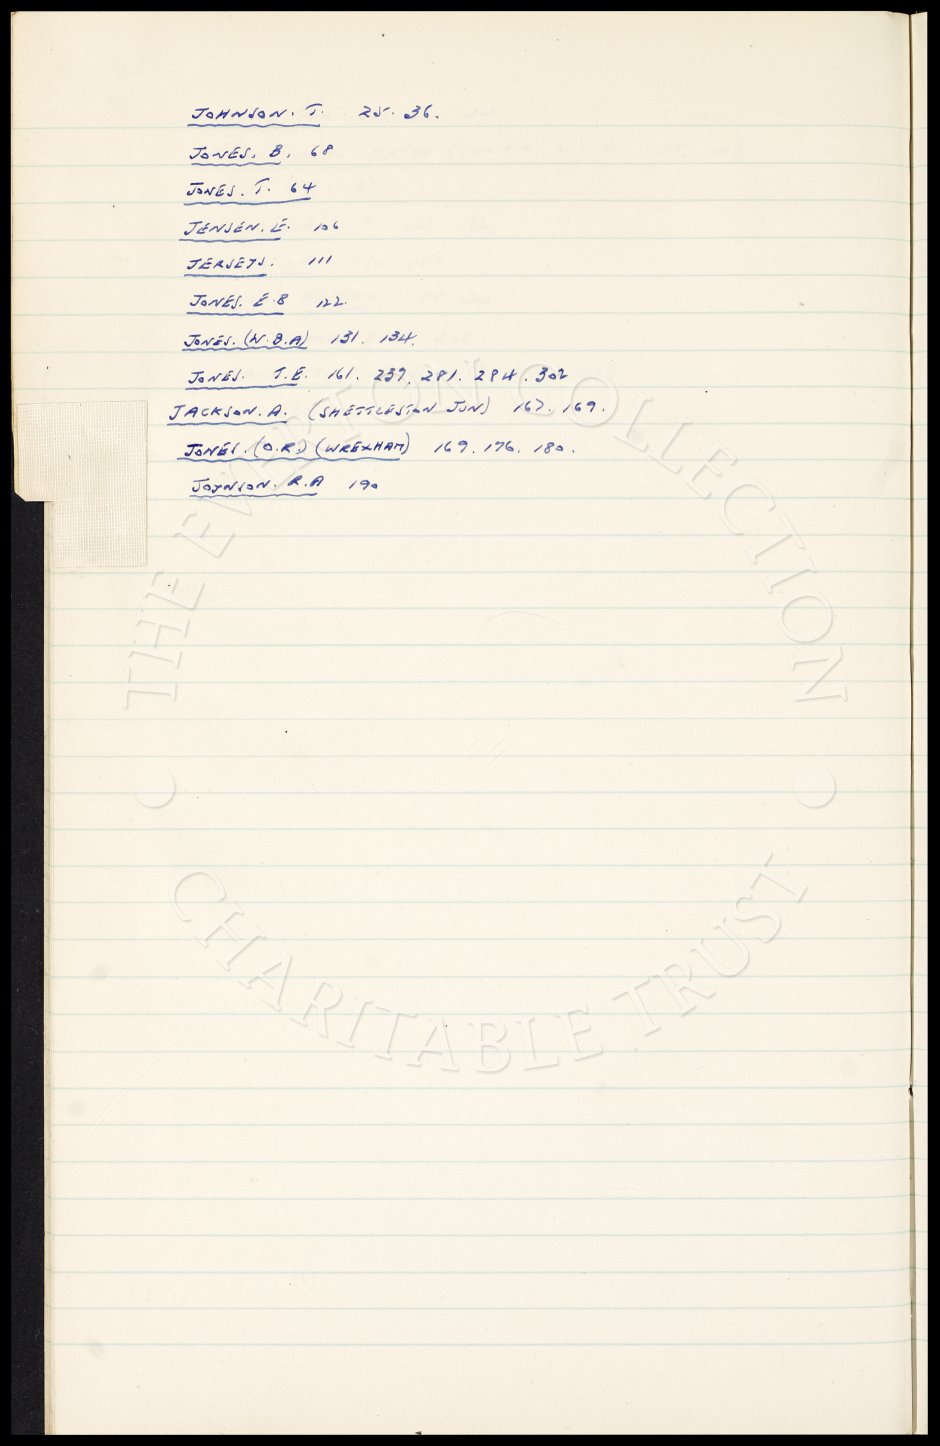 JOHNSON. T. 25. 36.
JONES. B. 68
JONES. T. 64
JENSEN. E. 106
JERSEYS. 111
JONES. E.B 122.
JONES. (W.B.A) 131. 134.
JONES. T.E. 161. 239. 281. 284. 302
JACKSON. A. (SHETTLESTON JUN) 167. 169.
JONES. (O.R.) (WREXHAM) 169. 176. 180.
JOYNSON. R.A 190
THE EVERTON COLLECTION
CHARITABLE TRUST